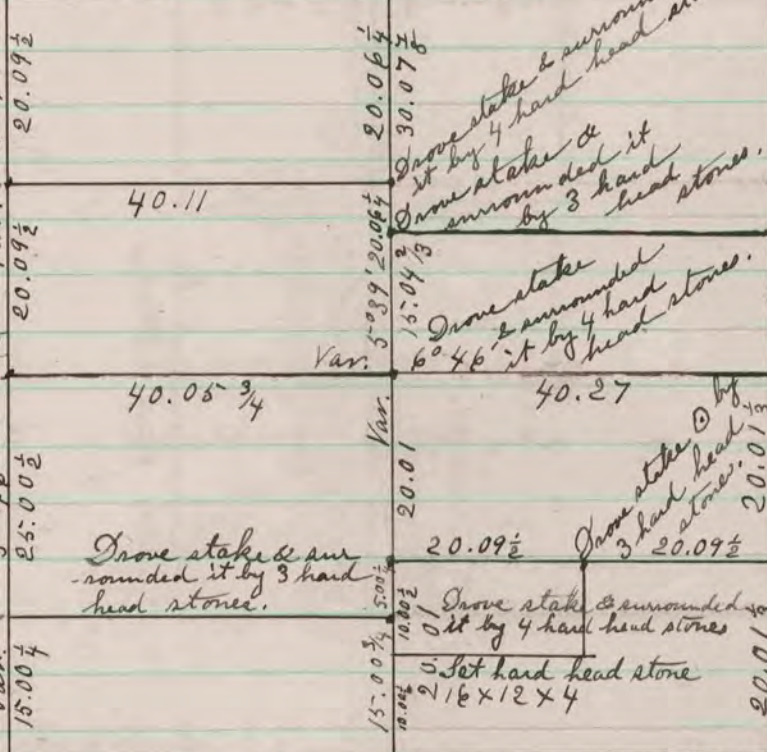 20.09½
20.06¼
30.07⅞
Drove stake & surroun
it by 4 hard head st
Drove stake &
surrounded it
by 3 hard
head stones.
40.11
20.09½
5°39' 20.06¼
15.04⅔
Drove stake
& surrounded
6° 46' it by 4 hard
head stones.
Var.
40.05 ¾
40.27
Var.
25.00½
20.01
Drove stake ⊙ by
3 hard head
stone.
20.01
20.09½
20.09½
Drove stake & sur
-rounded it by 3 hard
head stones.
5.00½
10.00½
Drove stake & surrounded
it by 4 hard head stones
15.00¼
15.00¾
10.00½
20.01
Set hard head stone
16 x 12 x 4
20.01